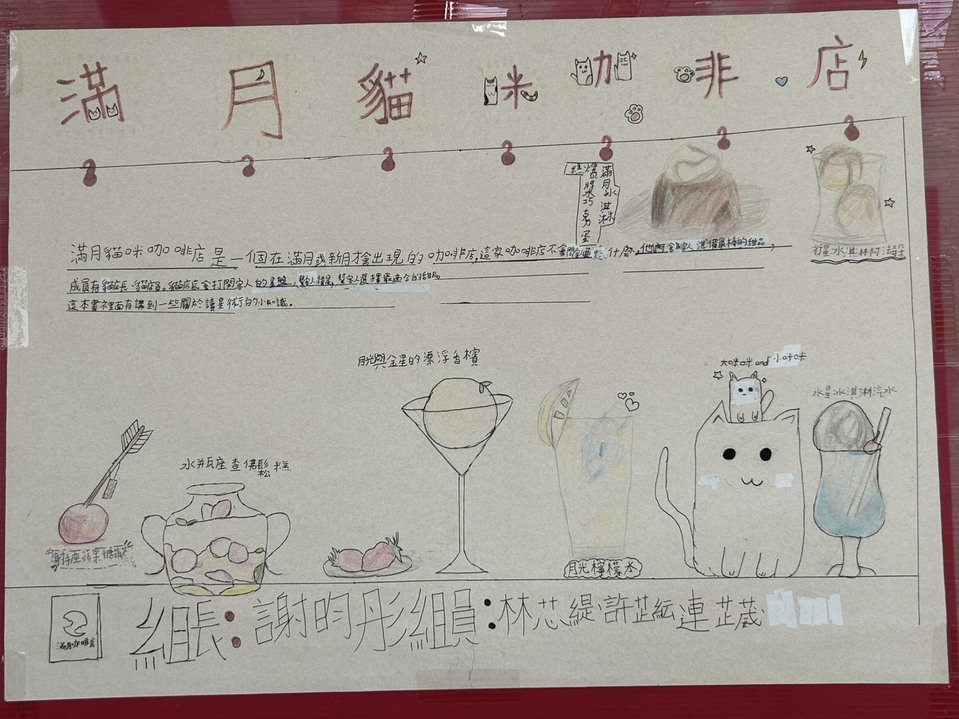 滿月貓咪咖啡店
滿月冰淇淋
爆漿巧克力蛋糕
滿月貓咪咖啡店是一個在滿月或新月才會出現的咖啡店,這家咖啡店不會問客人要點什麼,他們會為客人準備最棒的甜品,
成員有貓店長、貓店員。貓店長會打開客人的星盤,幫客人選擇最適合的甜品。
這本書裡面有講到一些關於讀星術的小知識。
月光與金星的漂浮香檳
大咪咪and小咪咪
水星冰淇淋汽水
水瓶座查佛鬆糕
射手座蘋果糖葫蘆
月光檸檬水
滿月咖啡店
組長:謝昀彤組員:林芯緹許芷紜連芷葳